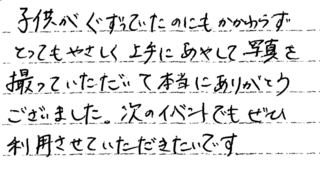 子供がぐずっていたのにもかかわらず
とってもやさしく上手にあやして写真を
撮っていただいて本当にありがとう
ございました。次のイベントでもぜひ
利用させていただきたいです